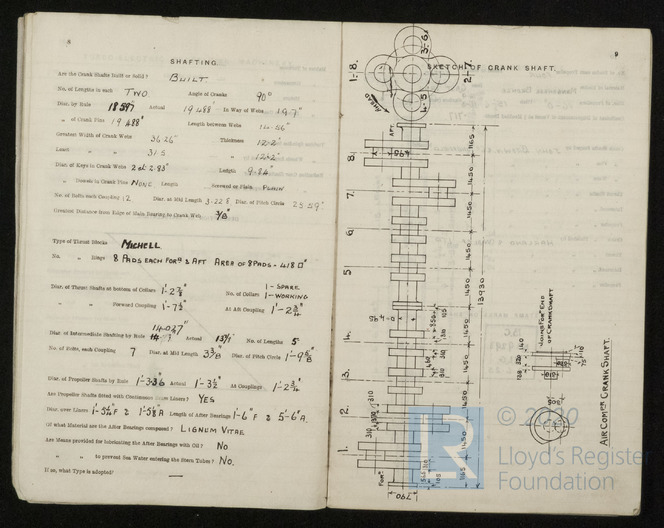 8
SHAFTING.
Are the Crank Shafts Built or Solid? BUILT
No. of Lengths in each TWO Angle of Cranks 90°
Diar. by Rule 18.59" Actual 19.488" In Way of Webs 19.7"
" of Crank Pins 19.488" Length between Webs
Greatest Width of Crank Webs 36.26" Thickness 12.2"
Least " " 31.5 " 12.2"
Diar. of Keys in Crank Webs 2 at 2.83" Length 9.84"
" Dowels in Crank Pins NONE Length Screwed or Plain PLAIN
No. of Bolts each Coupling 12 Diar. at Mid Length 3.228 Diar. of Pitch Circle 25.59"
Greatest Distance from Edge of Main Bearing to Crank Web 3/8"
Type of Thrust Blocks MICHELL
No. " Rings 8 PADS EACH FORD & AFT AREA OF 8 PADS - 418 □"
Diar. of Thrust Shafts at bottom of Collars 1'-2 7/8" No. of Collars 1 - SPARE
1 - WORKING
" " Forward Coupling 1'-7½" At Aft Coupling 1'-2¾"
Diar. of Intermediate Shafting by Rule 14.027" Actual No. of Lengths 5
No. of Bolts, each Coupling 7 Diar. at Mid Length 3 3/8" Diar. of Pitch Circle
Diar. of Propeller Shafts by Rule Actual 1'-3½" At Couplings 1'-2¾"
Are Propeller Shafts fitted with Continuous Brass Liners? YES
Diar. over Liners Length of After Bearings 1'-6"F & 5'-6"A
Of what Material are the After Bearings composed? LIGNUM VITAE
Are Means provided for lubricating the After Bearings with Oil? No
" " to prevent Sea Water entering the Stern Tubes? No.
If so, what Type is adopted? —
9
SKETCH OF CRANK SHAFT.
1-8.
3-6.
2-7.
4-5
AHEAD
AFT
8.
7.
6.
5
4.
3.
2.
1.
FORD
1165
1450
1450
1450
1450
1450
1450
1165
13930
790
310
310
310
105
JOINS FORD END
OF CRANKSHAFT
AIR COMPR CRANK SHAFT.
© 2020
LR
Lloyd's Register
Foundation